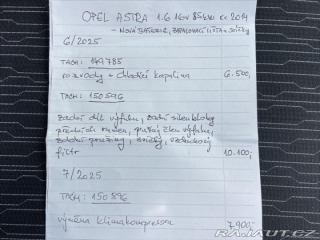 OPEL ASTRA 1.6 16V 85kW rv 2014
- NOVÁ BATERIE, ZAPALOVACÍ LIŠTA + SVÍČKY
6/2025
TACH: 149785
rozvody + chladící kapalina 6.500,
TACH: 150596
zadní díl výfuku, zadní silenbloky
předních ramen, pružný člen výfuku,
zadní pružiny, svíčky, vzduchový
filtr 10.100,-
7/2025
TACH: 150896
výměna klimakompresoru 7.900,-
RAJAUT.CZ